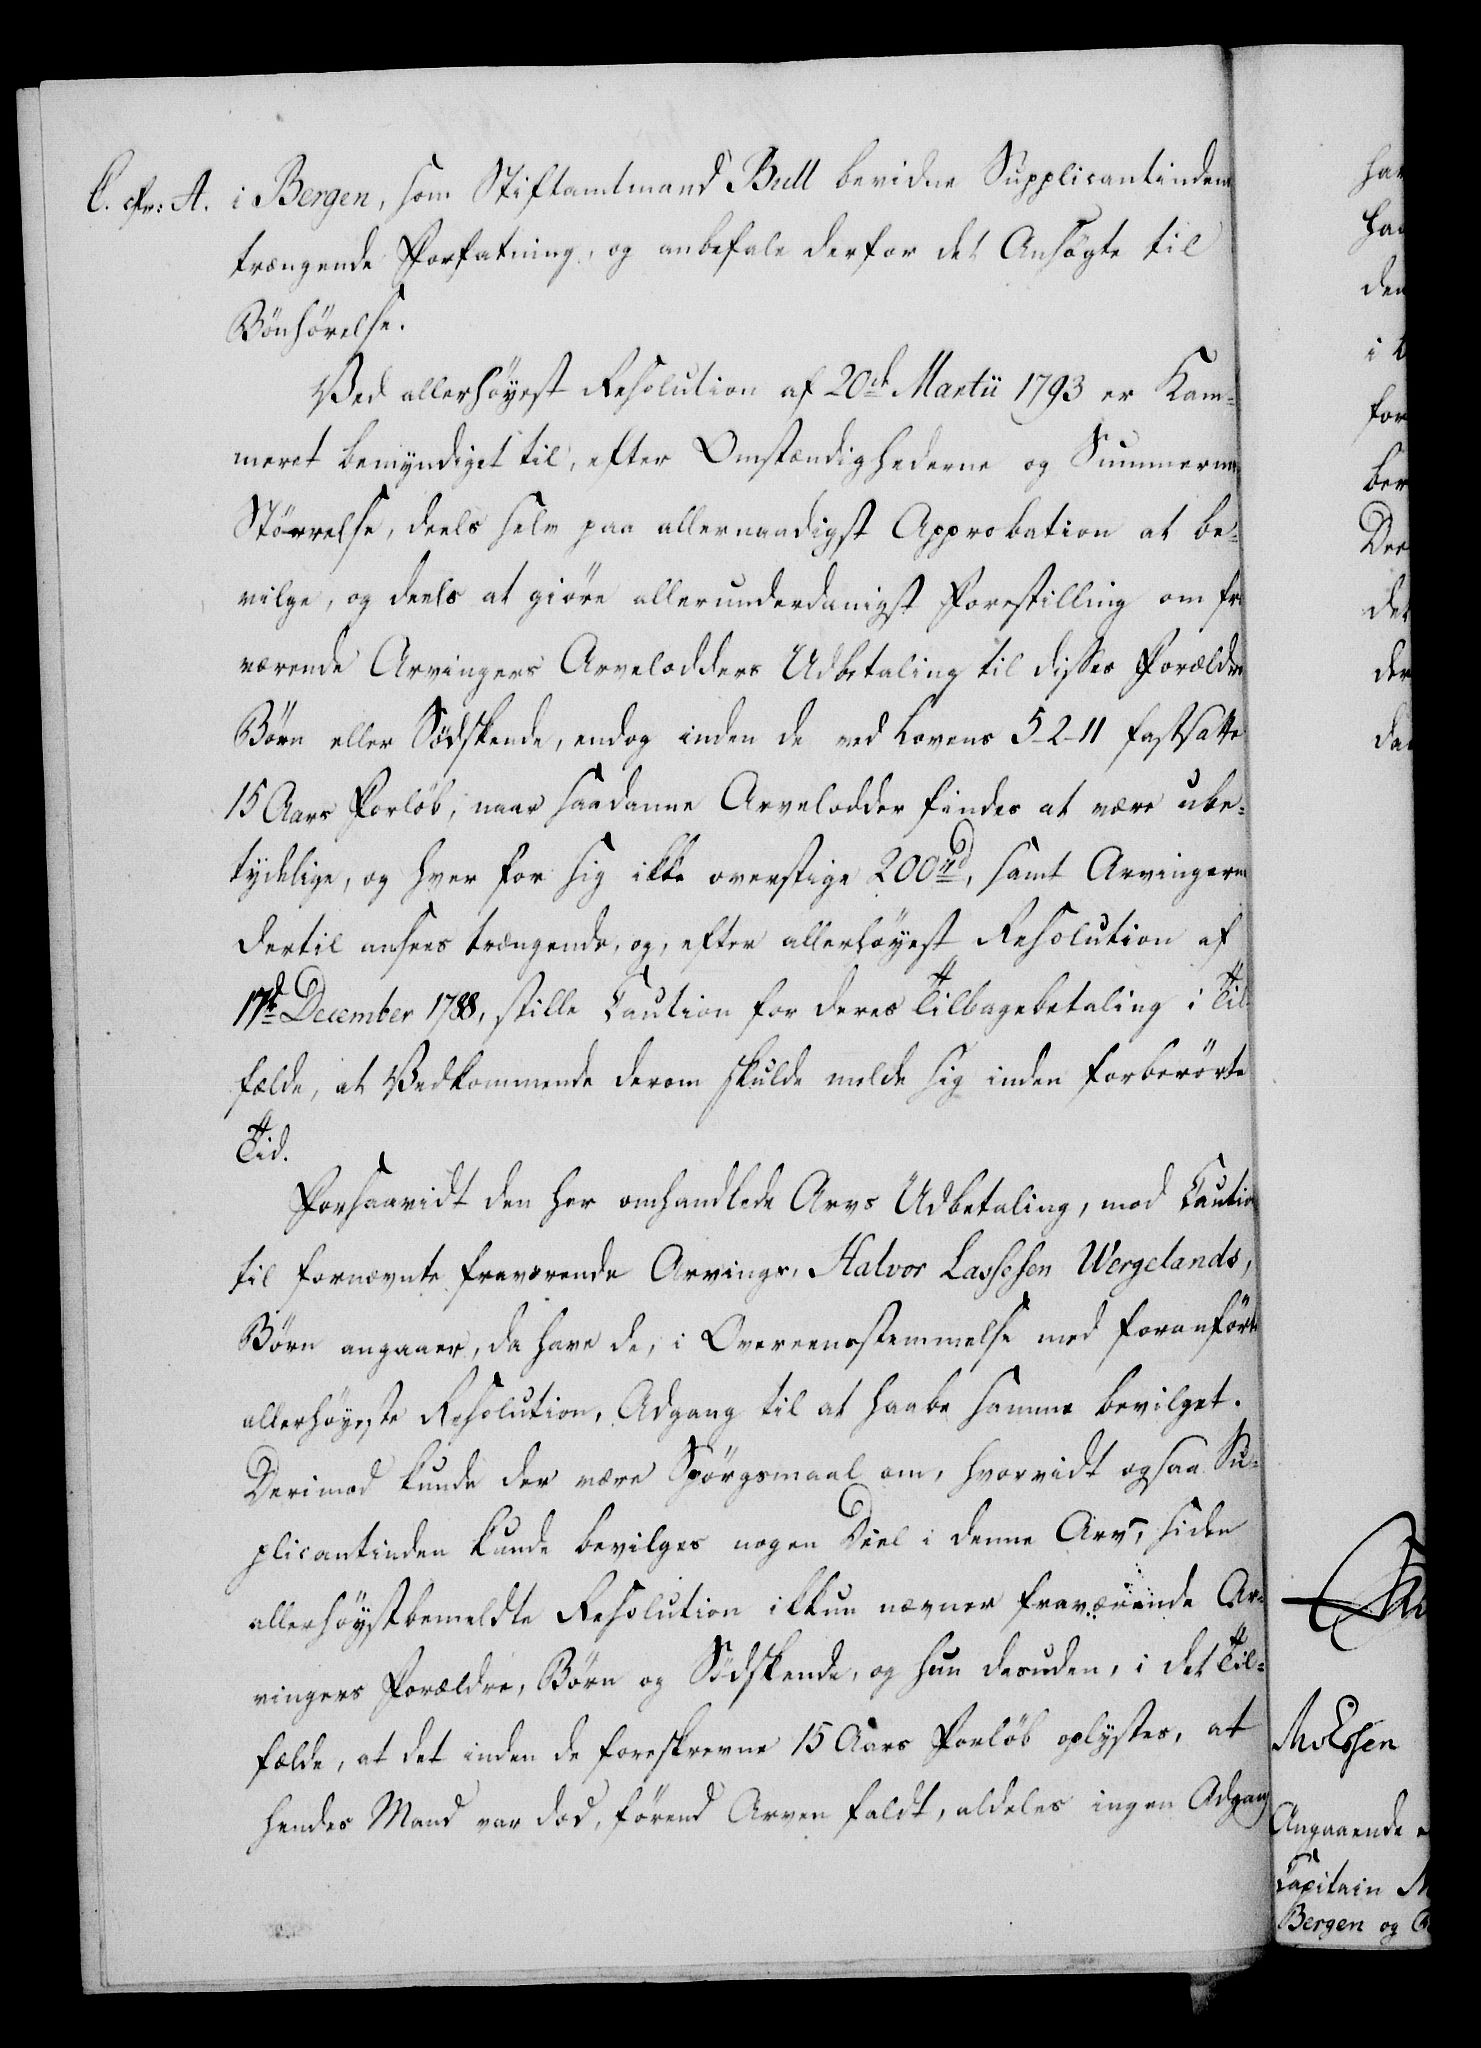 C. cfr: A. i Bergen, som Stiftamtmand Bull bevidne Supplicantindens
trængende Forfatning, og anbefale derfor det Ansøgte til
Bönhörelse.
Ved allerhöyest Resolution af 20de Martii 1793 er Kam-
meret bemyndiget til, efter Omstændighederne og Summernes
Störrelse, deels selv paa allernaadigst Approbation at be-
vilge, og deels at giöre allerunderdanigst Forestilling om fra
værende Arvingers Arvelodders Udbetaling til disses Forældre
Börn eller Södskende, endog inden de ved Lovens 5-2-11 fastsatte
15 Aars Forlöb, naar saadanne Arvelodder findes at være ube-
tydelige, og hver for sig ikke overstige 200rd, samt Arvingerne
dertil ansees trængende, og, efter allerhöyest Resolution af
17de December 1788, stille Caution for deres Tilbagebetaling i Til-
fælde, at Vedkommende derom skulde melde sig inden forberörte
Tid.
Forsaavidt den her omhandlede Arvs Udbetaling, mod Caution
til fornævnte fraværende Arvings, Halvor Lassesen Wergelands,
Börn angaaer, da have de, i Overeensstemmelse med foranförte
allerhöyeste Resolution, Adgang til at haabe samme bevilget.
Derimod kunde der være Spörgsmaal om, hvorvidt ogsaa Su-
plicantinden kunde bevilges nogen Deel i denne Arv, siden
allerhöystbemeldte Resolution ikkun nævner fraværende Ar-
vingers Forældre, Börn og Södskende, og hun desuden, i det Til-
fælde, at det inden de foreskrevne 15 Aars Forlöb oplystes, at
hendes Mand var död, förend Arven faldt, aldeles ingen Adgang
den
i
for
ber
det
der
Angaaende
Capitain
Bergen og